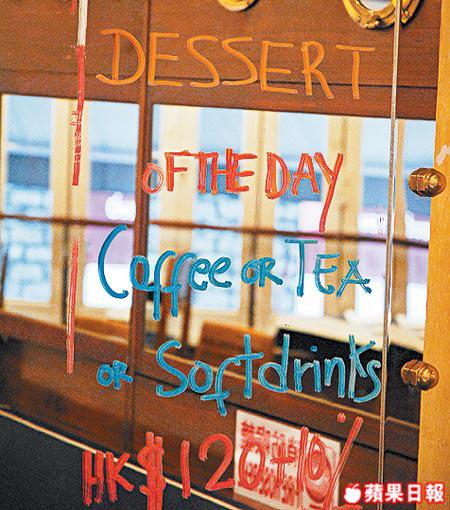 DESSERT
OF THE DAY
Coffee OR TEA
OR Softdrinks
HK$120+10%
蘋果日報